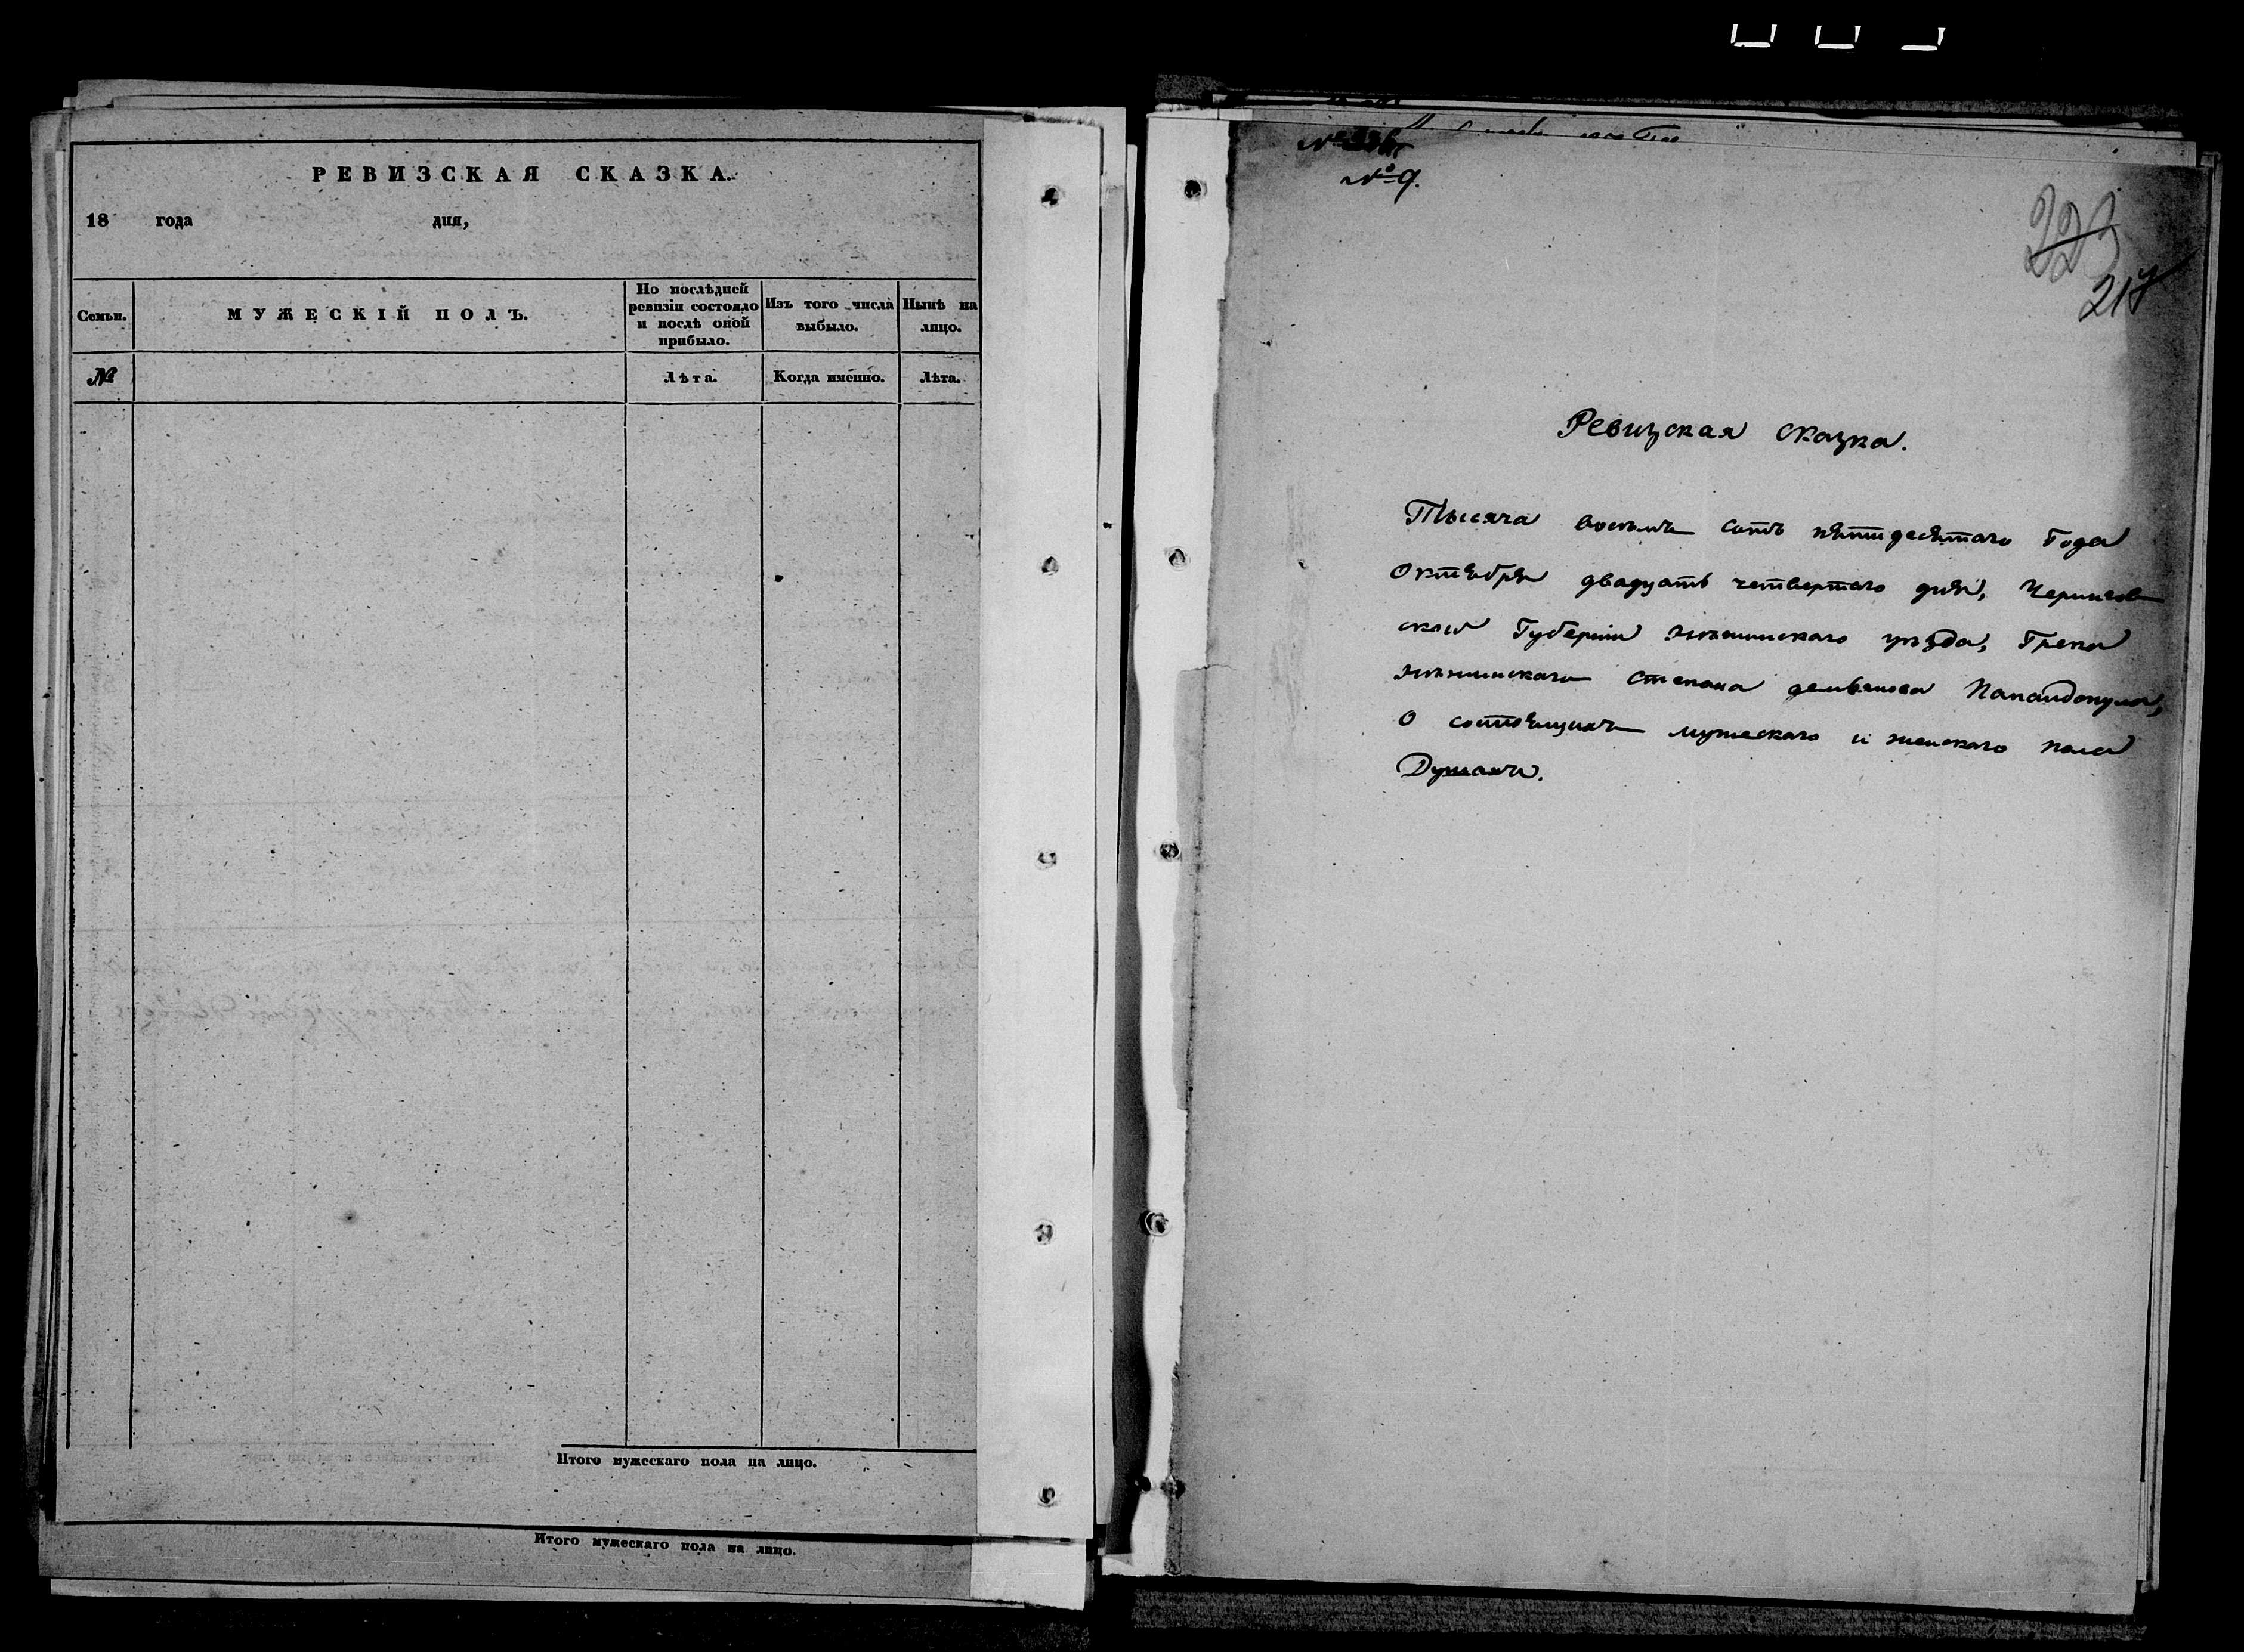 РЕВИЗСКАЯ СКАЗКА.
18 года дня,
Семьи.
МУЖЕСКІЙ ПОЛЪ.
По послѣдней ревизіи состояло и послѣ оной прибыло.
Изъ того числа выбыло.
Нынѣ на лицо.
№
Лѣта.
Когда именно.
Лѣта.
Итого мужескаго пола на лицо.
Итого мужескаго пола на лицо.
№ 9.
223
Ревизская сказка.
Тысяча восемь сотъ пятидесятаго Года
Октября двадцать четвертаго дня, Чернигов
ской Губерніи Нѣжинскаго уѣзда, Грека
Нѣжинскаго Степана Демьянова Папандопула,
О состоящихъ мужескаго и женскаго пола
Душахъ.